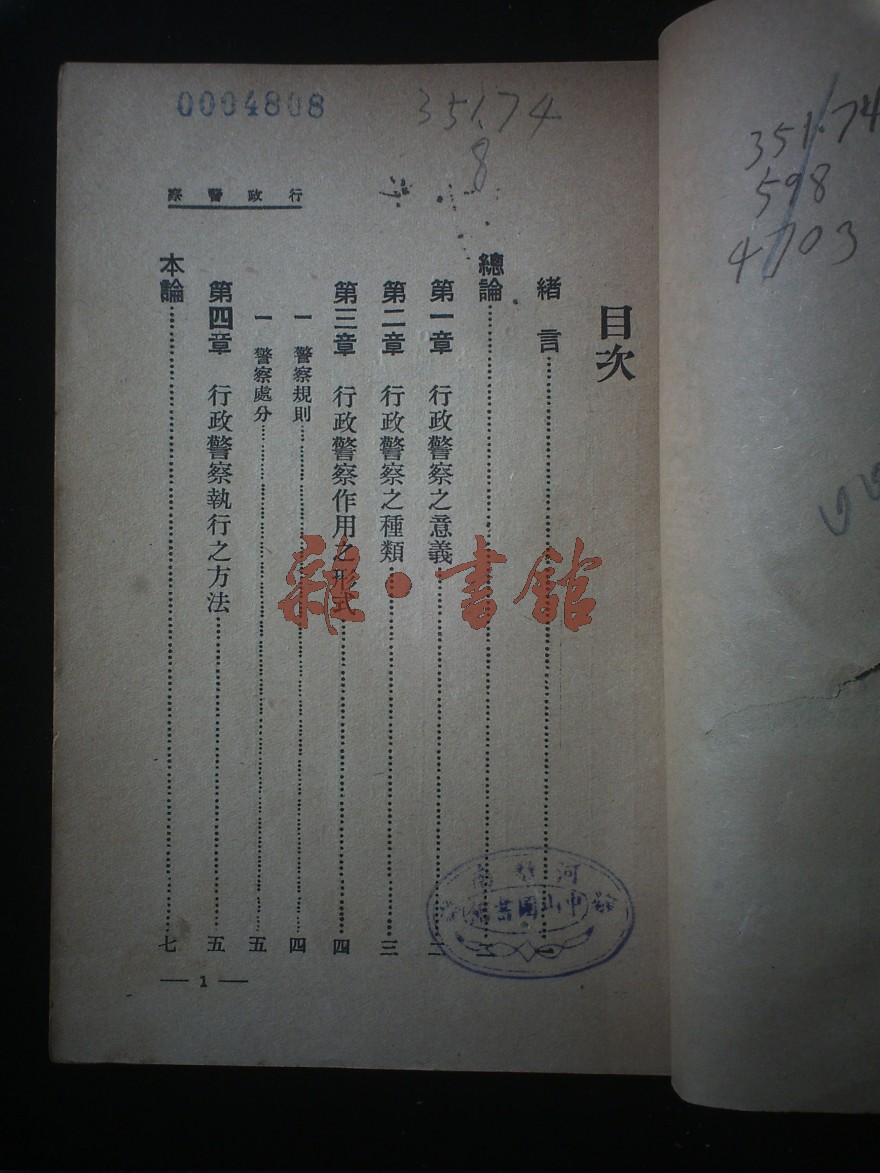 0004808
351.74
8
351.74
598
4703
行政警察
目次
緒言…………一
總論…………二
第一章 行政警察之意義…………二
第二章 行政警察之種類…………三
第三章 行政警察作用之形式…………四
一 警察規則…………四
一 警察處分…………五
第四章 行政警察執行之方法…………五
本論…………七
— 1 —
雜·書館
中山圖書館